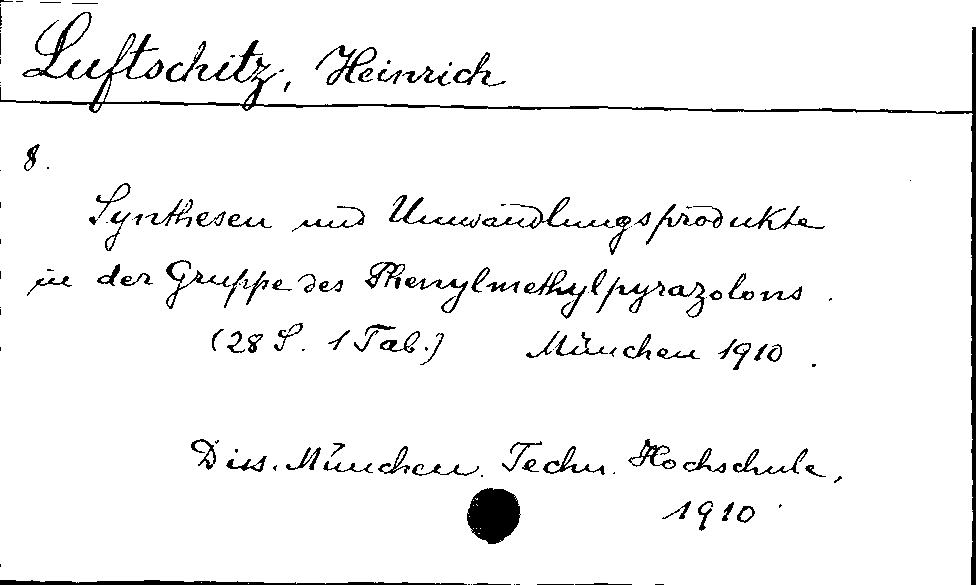 Luftschitz, Heinrich
8.
Synthesen und Umwandlungsprodukte
in der Gruppe des Phenylmethylpyrazolons.
(28 S. 1 Tab.) München 1910.
Diss. München. Techn. Hochschule,
1910